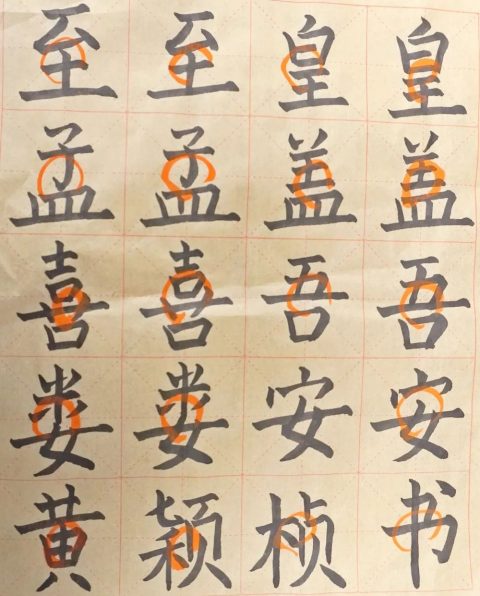 至至皇皇
孟孟盖盖
喜喜吾吾
娄娄安安
黄颖桢书